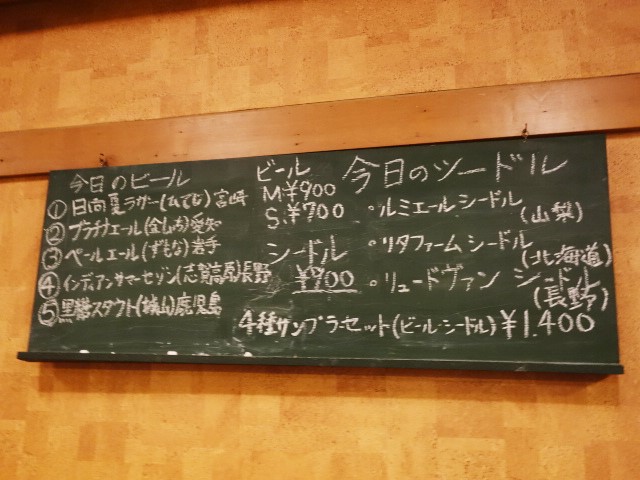 今日のビール
① 日向夏ラガー(ひでじ)宮崎
② プラチナエール(金しゃち)愛知
③ ペールエール(ずもな)岩手
④ インディアンサマーセゾン(志賀高原)長野
⑤ 黒糖スタウト(城山)鹿児島
ビール
M:¥900
S:¥700
シードル
¥900
今日のシードル
・ルミエールシードル
(山梨)
・リタファームシードル
(北海道)
・リュードヴァン シードル
(長野)
4種サンプラーセット(ビール・シードル)¥1,400